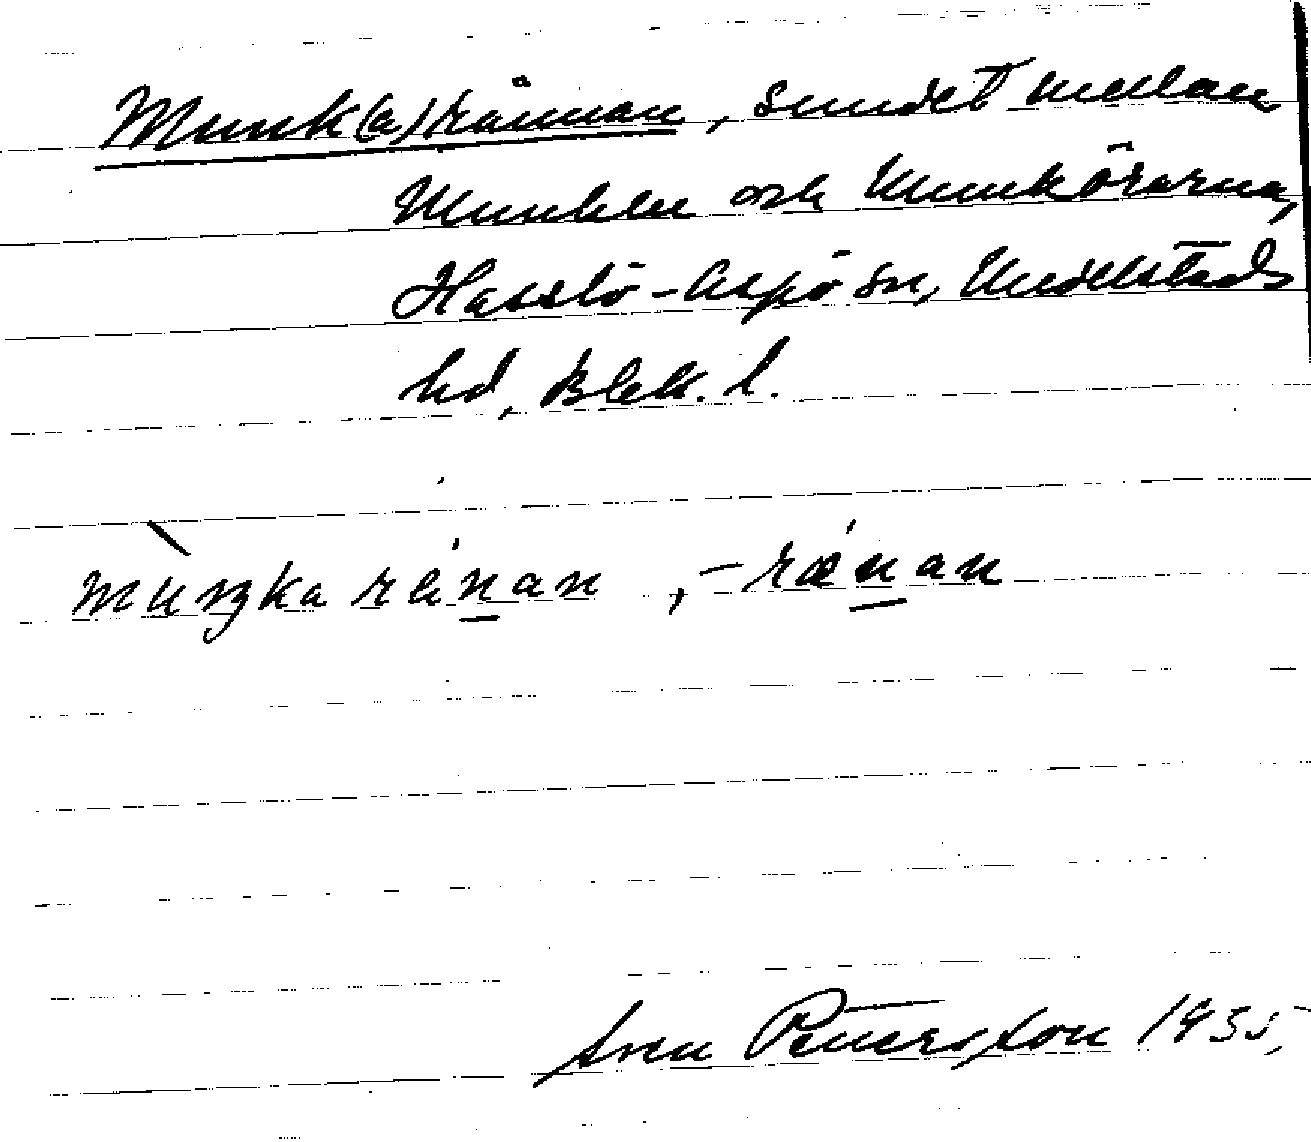 Munk(a)rännan, sundet mellan
Munken och Munkörarna,
Hasslö-Aspö sn, Medelstads
hd, Blek. l.
muŋka rénan, -rǽnan
Sven Petersson 1935,